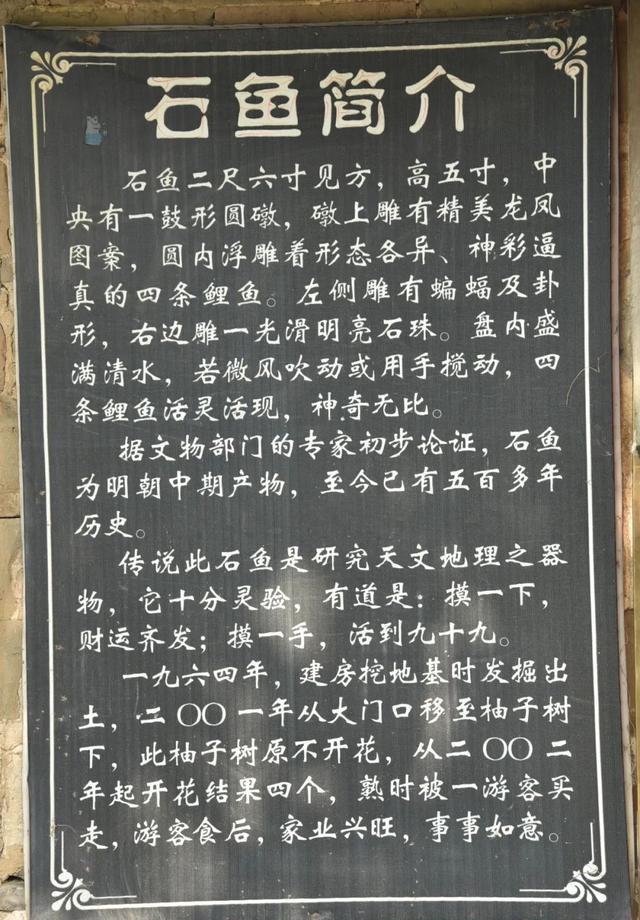 石鱼简介
石鱼二尺六寸见方，高五寸，中
央有一鼓形圆礅，礅上雕有精美龙凤
图案，圆内浮雕着形态各异、神彩逼
真的四条鲤鱼。左侧雕有蝙蝠及卦
形，右边雕一光滑明亮石珠。盘内盛
满清水，若微风吹动或用手搅动，四
条鲤鱼活灵活现，神奇无比。
据文物部门的专家初步论证，石鱼
为明朝中期产物，至今已有五百多年
历史。
传说此石鱼是研究天文地理之器
物，它十分灵验，有道是：摸一下，
财运齐发；摸一手，活到九十九。
一九六四年，建房挖地基时发掘出
土，二〇〇一年从大门口移至柚子树
下，此柚子树原不开花，从二〇〇二
年起开花结果四个，熟时被一游客买
走，游客食后，家业兴旺，事事如意。